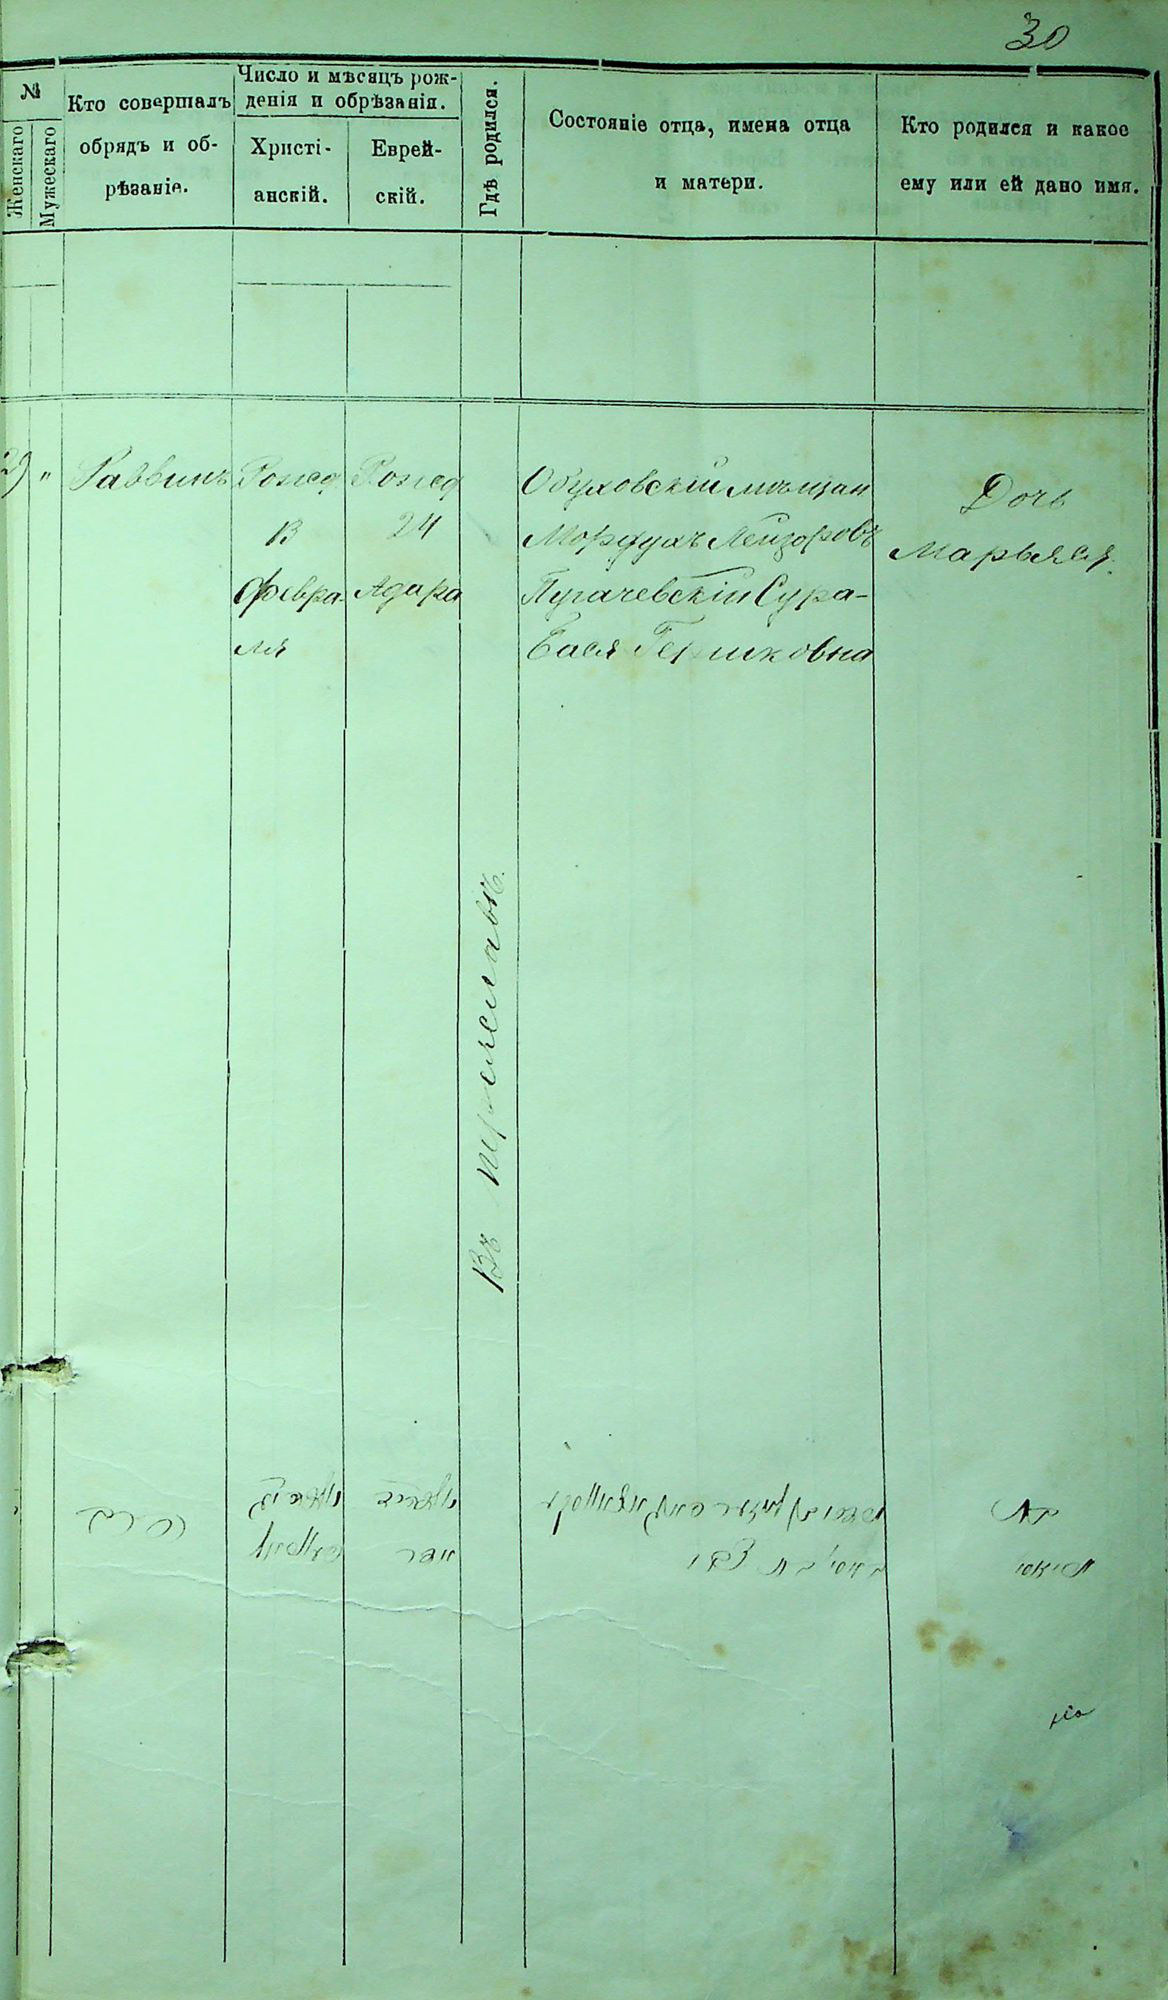 30
№
Женскаго
Мужескаго
Кто совершалъ
обрядъ и об-
рѣзаніе.
Число и мѣсяцъ рож-
денія и обрѣзанія.
Христі-
анскій.
Еврей-
скій.
Гдѣ родился.
Состояніе отца, имена отца
и матери.
Кто родился и какое
ему или ей дано имя.
29
"
Раввинъ
Рожд
13
Февра-
ля
Рожд
24
Адара
Въ Переяславѣ.
Обуховскій мѣщан
Мордухъ Лейзоровъ
Пугачевскій Сура-
Бася Гершковна
Дочь
Марьяся.
אדר
בת